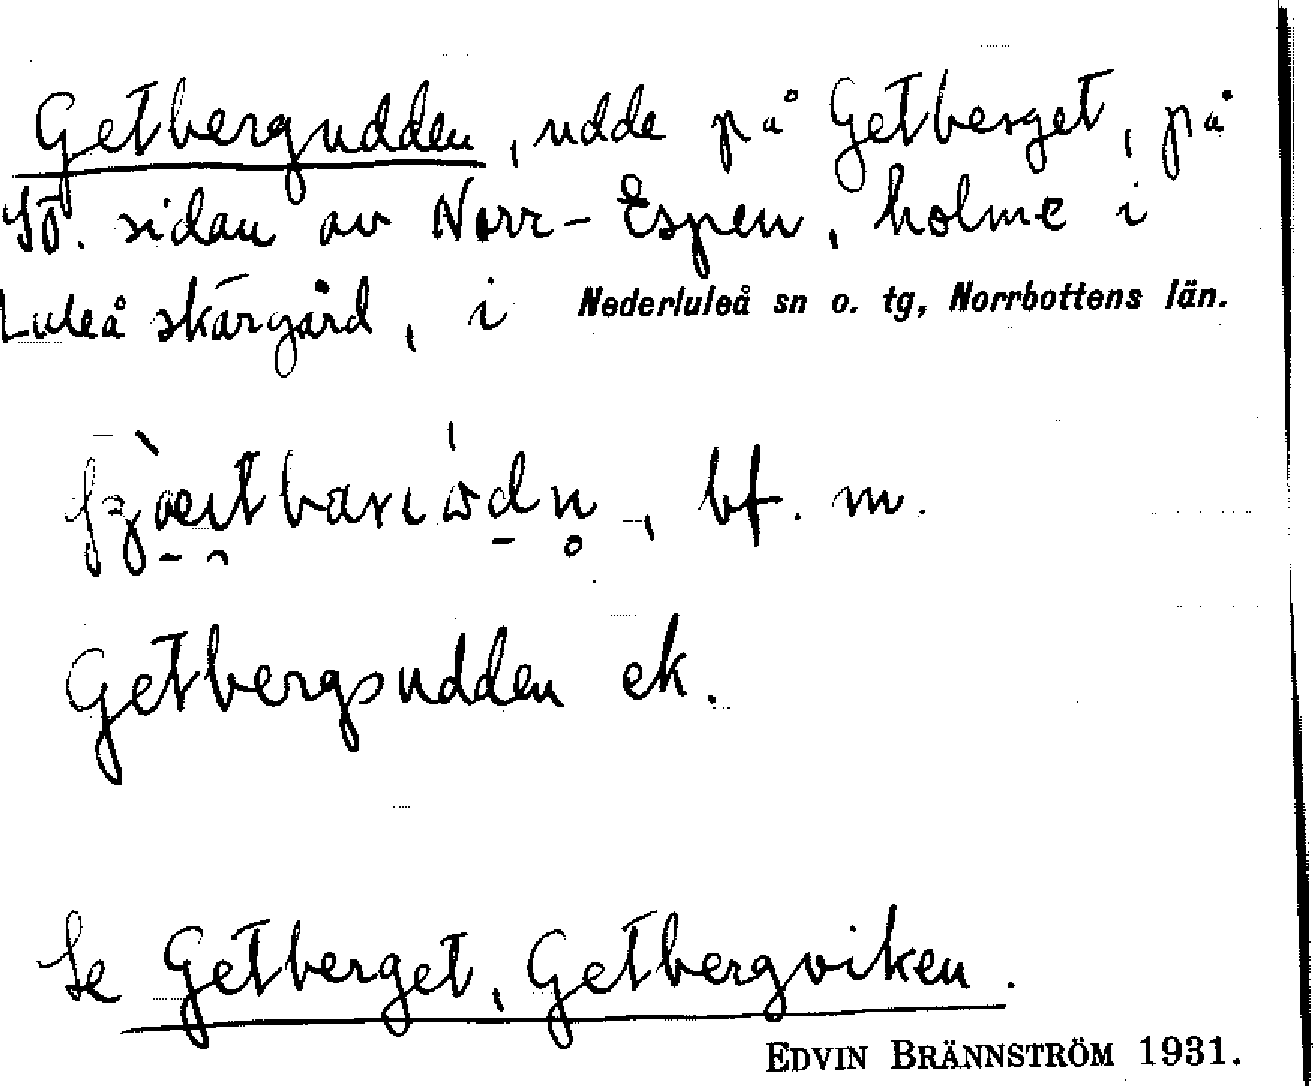 Getbergudden, udde på Getberget, på
SÖ. sidan av Norr-Espen, holme i
Luleå skärgård, i Nederluleå sn o. tg, Norrbottens län.
bf. m.
Getbergsudden ek.
Se Getberget, Getbergviken.
EDVIN BRÄNNSTRÖM 1931.